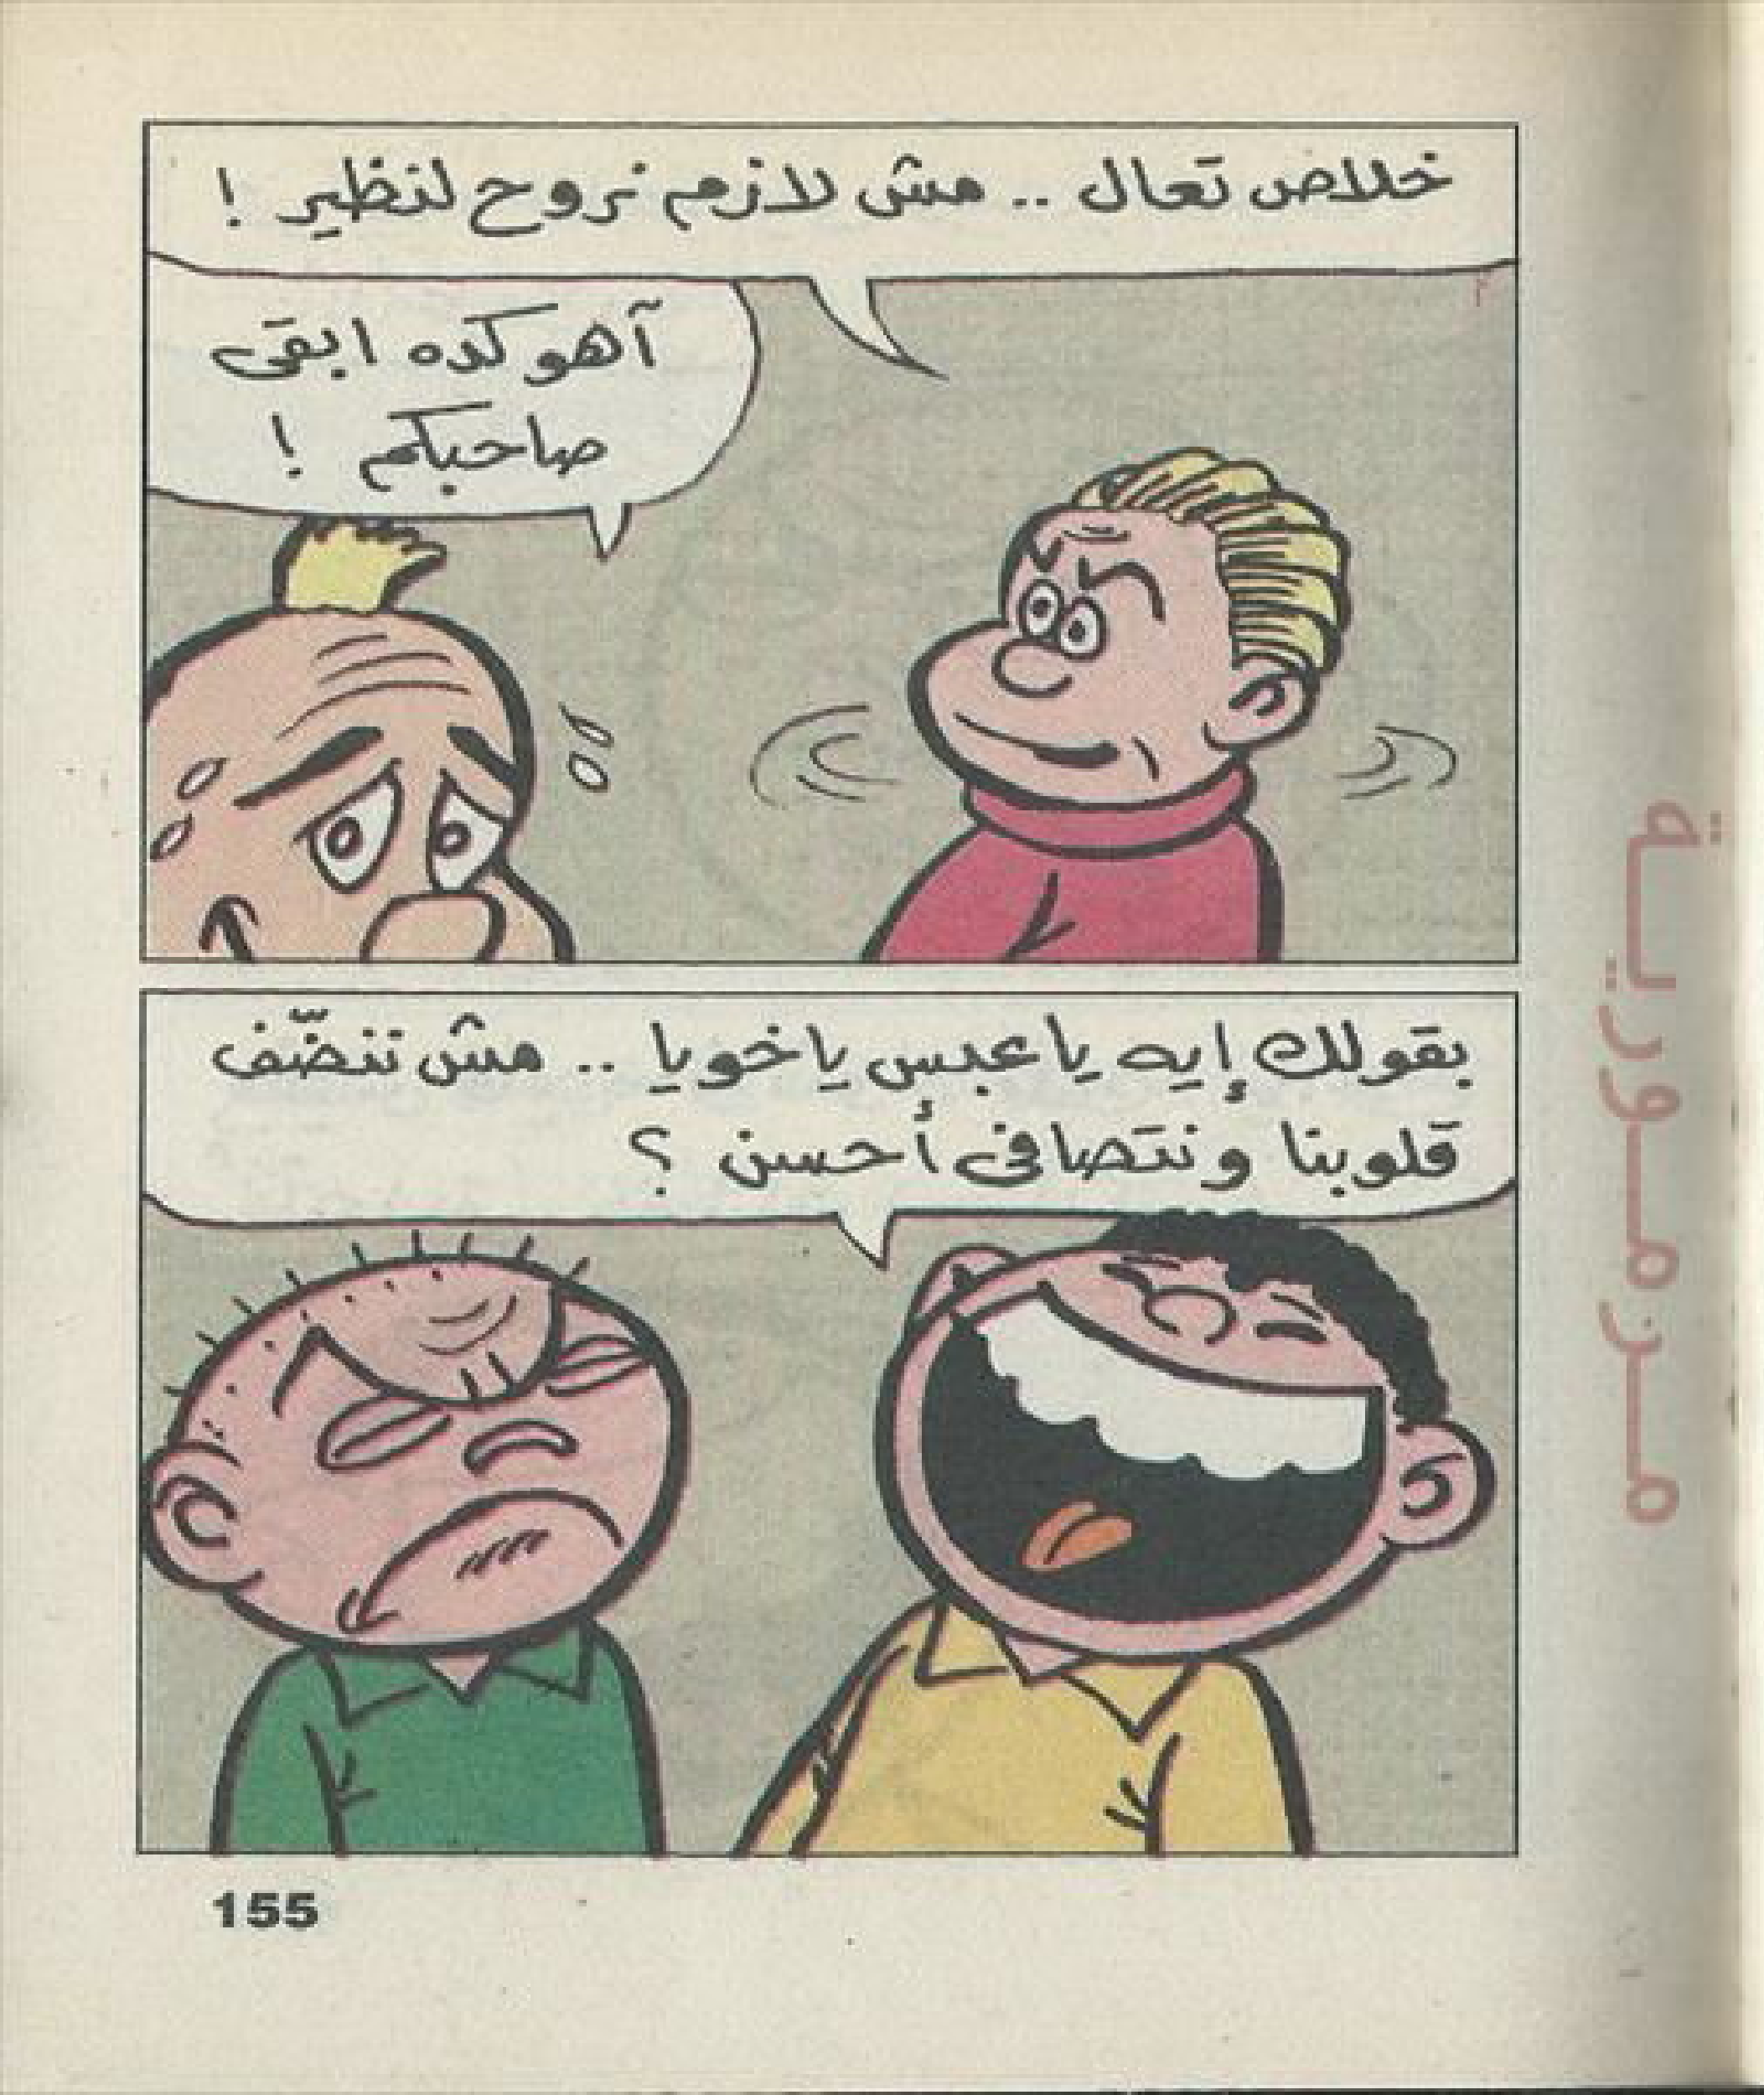 خلاص تعال .. مش لازم نروح لنظير !
آهو كده ابقى
صاحبكم !
بقولك إيه يا عبس ياخويا .. مش ننضّف
قلوبنا ونتصافى أحسن ؟
155